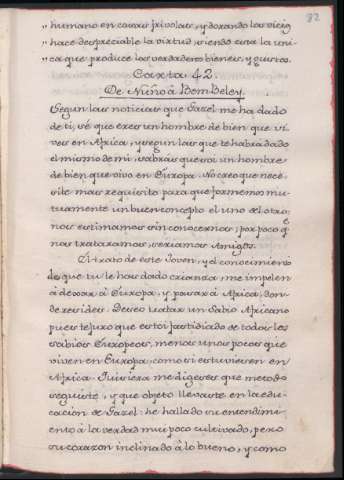 82
" humano en cosas frivolas, y dorando los vicios
" hace despreciable la virtud, siendo esta la uni-
ca que produce los verdaderos bienes, y gustos.
Carta 42.
De Nuño à Bem Beley.
Segun las noticias que Gazel me ha dado
de ti, sé que eres un hombre de bien que vi-
ves en Africa, y segun las que te habrá dado
el mismo de mi, sabrás que soi un hombre
de bien que vivo en Europa. No creo que nece-
site mas requisito para que formemos mu-
tuamente un buen concepto el uno del otro;
nos estimamos sin conocernos; por poco q.e
nos tratáramos, seriamos Amigos.
El trato de este Joven, y el conocimiento
de que tu le has dado crianza, me impelen
à dexar à Europa, y pasar à Africa, don-
de resides. Deseo tratar un Sabio Africano
pues te juro que estoi fastidiado de todos los
sabios Europeos, menos unos pocos que
viven en Europa, como si estuviesen en
Africa. Quisiera me dixeses que metodo
seguiste, y que objeto llevaste en la edu-
cacion de Gazel: he hallado su entendimi-
ento à la verdad mui poco cultivado, pero
su corazon inclinado à lo bueno, y como